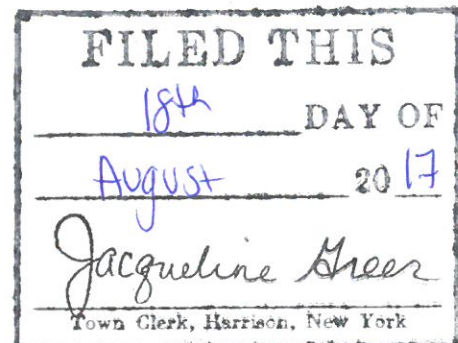 FILED THIS
18th DAY OF
August 20 17
Jacqueline Greer
Town Clerk, Harrison, New York